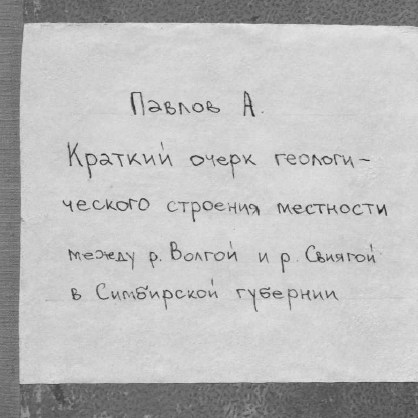 Павлов А.
Краткий очерк геологи-
ческого строения местности
между р. Волгой и р. Свиягой
в Симбирской губернии